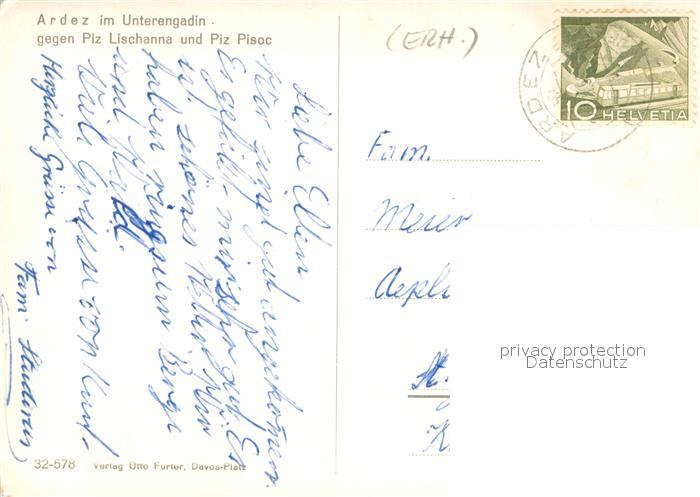 Ardez im Unterengadin
gegen Piz Lischanna und Piz Pisoc
(ERH.)
ARDEZ
10 HELVETIA
Liebe Eltern
Wir sind gut angekomen.
Es gefällt mir sehr gut. Es
ist schönes Wetter. Wir
haben ringsum Berge
und
Viele Grüsse von Kurt.
Herzliche Grüsse von
Fam. Studerus
Fam.
Meier
Aepli
St.
K
privacy protection
Datenschutz
32-578 Verlag Otto Furter, Davos-Platz